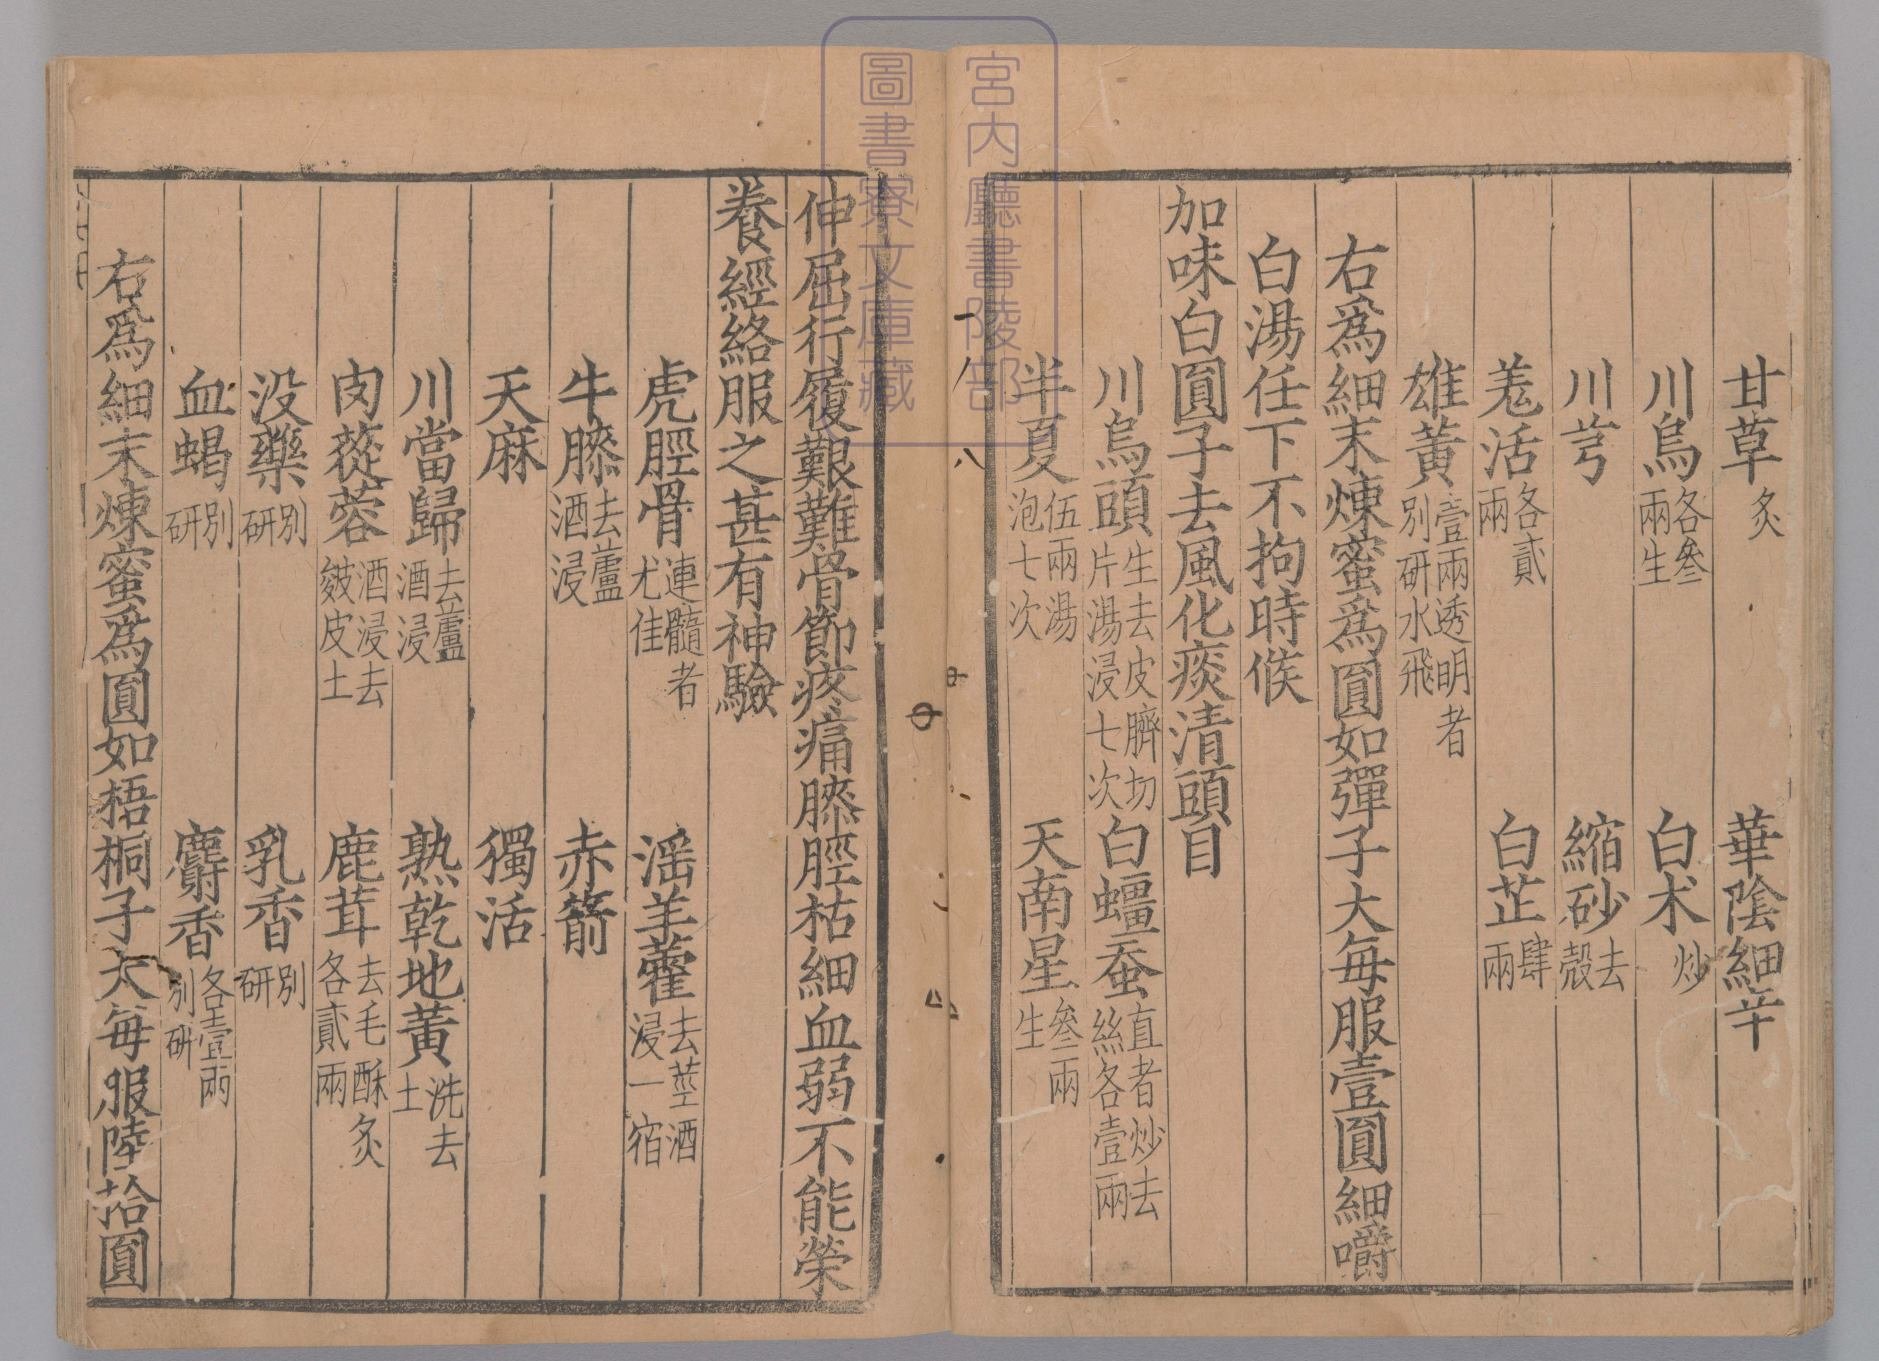 甘草炙　華陰細辛
川烏各叄兩生　白朮炒
川芎　縮砂去殼
羌活各貳兩　白芷肆兩
雄黃壹兩透明者別研水飛
右爲細末煉蜜爲圓如彈子大每服壹圓細嚼
白湯任下不拘時候
加味白圓子去風化痰清頭目
川烏頭生去皮臍切片湯浸七次　白蠒蚕直者炒去絲各壹兩
半夏伍兩湯泡七次　天南星叄兩生
伸屈行履艱難骨節疼痛膝脛枯細血弱不能榮
養經絡服之甚有神驗
虎脛骨連髓者尤佳　淫羊藿去莖酒浸一宿
牛膝去蘆酒浸　赤箭
天麻　獨活
川當歸去蘆酒浸　熟乾地黃洗去土
肉蓯蓉酒浸去皴皮土　鹿茸去毛酥炙各貳兩
没藥別研　乳香別研
血蝎別研　麝香各壹兩別研
右爲細末煉蜜爲圓如梧桐子大每服陸拾圓
宮内廳書陵部
圖書寮文庫藏